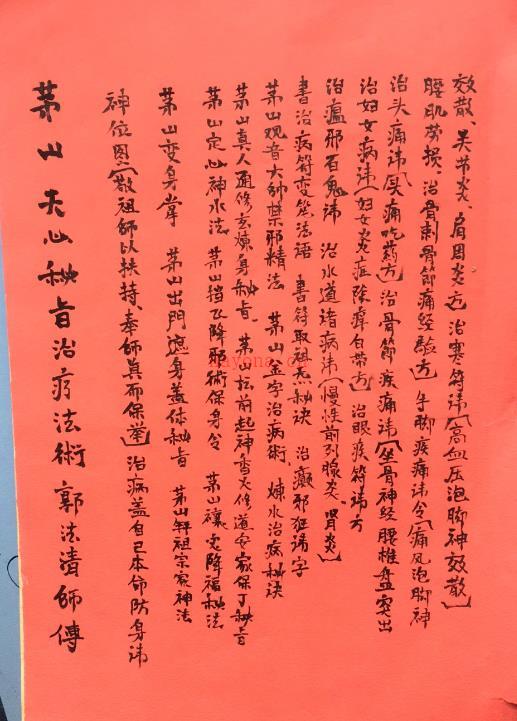 茅山天心秘旨治疗法術 郭法清師傳
神位图【敬祖師以扶持、奉師真而保举】治病盖自己本命防身讳
茅山变身掌 茅山出門遮身盖体秘旨 茅山拜祖宗家神法
茅山定心神水法 茅山挡飞降邪術保身令 茅山禳灾降福秘法
茅山真人通修玄煉身秘旨、茅山坛前起神变火修道安家保丁秘旨
茅山观音大帅禁邪精法 茅山金字治病術、煉水治病秘诀
書治病符变笔法語 書符取祖炁秘诀 治癫邪狂讳字
治瘟邪百鬼讳 治水道诸病讳【慢性前列腺炎、胃炎】
治妇女病讳【妇女炎症除瘴白带方】治眼疾符讳方
治头痛讳【头痛吃药方】治骨節疾痛讳【坐骨神经腰椎盘突出
腰肌劳损、治骨刺骨節痛经驗方】手脚疾痛讳令【痛风泡脚神
效散、关节炎、肩周炎方】治寒符讳【高血压泡脚神效散】